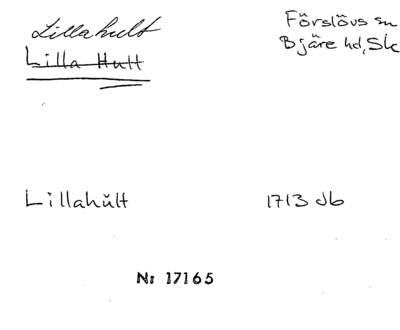 Lillahult
Lilla Hult
Förslövs sn
Bjäre hd, Sk
Lillahŭlt
1713 Jb
Nr 17165